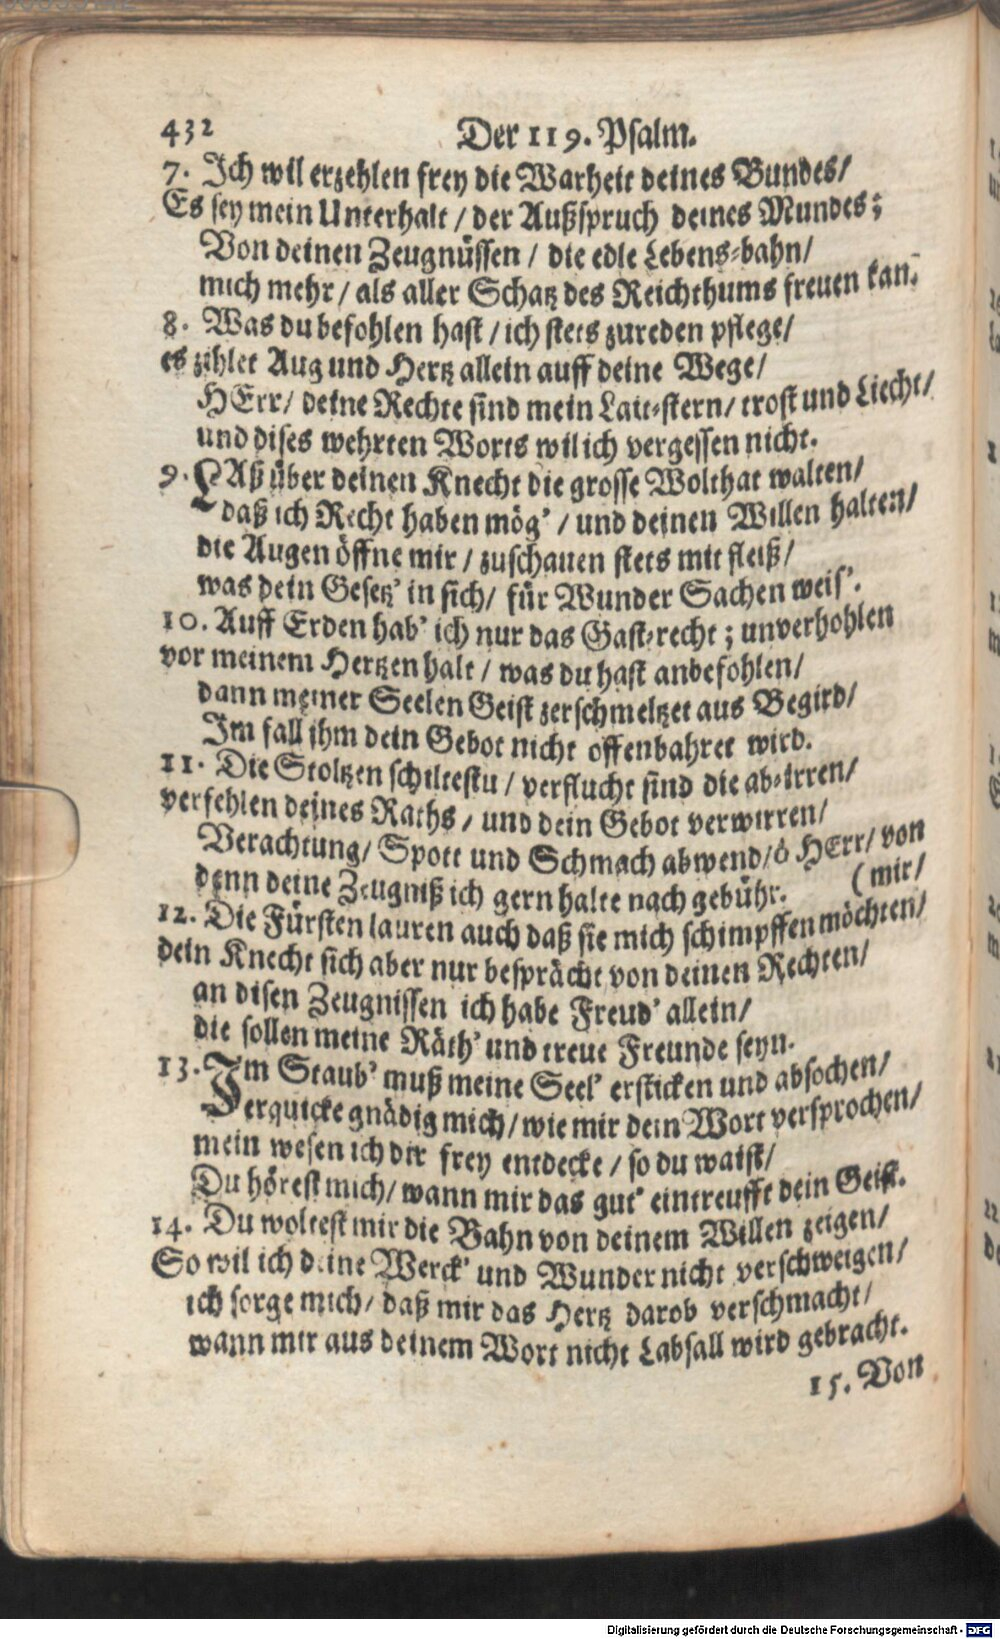 432 Der 119. Psalm.
7. Ich wil erzehlen frey die Warheit deines Bundes/
Es sey mein Unterhalt / der Außspruch deines Mundes;
Von deinen Zeugnüssen / die edle Lebens-bahn/
mich mehr / als aller Schatz des Reichthums freuen kan.
8. Was du befohlen hast / ich stets zureden pflege/
es zihlet Aug und Hertz allein auff deine Wege/
HErr/ deine Rechte sind mein Lait-stern/ trost und Liecht/
und dises wehrten Worts wil ich vergessen nicht.
9. LAß über deinen Knecht die grosse Wolthat walten/
daß ich Recht haben mög' / und deinen Willen halten/
die Augen öffne mir / zuschauen stets mit fleiß/
was dein Gesetz' in sich/ für Wunder Sachen weis'.
10. Auff Erden hab' ich nur das Gast-recht; unverhohlen
vor meinem Hertzen halt / was du hast anbefohlen/
dann meiner Seelen Geist zerschmeltzet aus Begird/
Im fall ihm dein Gebot nicht offenbahret wird.
11. Die Stoltzen schiltestu / verflucht sind die ab-irren/
verfehlen deines Raths / und dein Gebot verwirren/
Verachtung/ Spott und Schmach abwend/ ô HErr/ von
denn deine Zeugniß ich gern halte nach gebühr. (mir/
12. Die Fürsten lauren auch daß sie mich schimpffen möchten/
dein Knecht sich aber nur besprächt von deinen Rechten/
an disen Zeugnissen ich habe Freud' allein/
die sollen meine Räth' und treue Freunde seyn.
13. Im Staub' muß meine Seel' ersticken und absochen/
erquicke gnädig mich / wie mir dein Wort versprochen/
mein wesen ich dir frey entdecke / so du waist/
Du hörest mich/ wann mir das gut' eintreufft dein Geist.
14. Du woltest mir die Bahn von deinem Willen zeigen/
So wil ich deine Werck' und Wunder nicht verschweigen/
ich sorge mich/ daß mir das Hertz darob verschmacht/
wann mir aus deinem Wort nicht Labsall wird gebracht.
15. Von
Digitalisierung gefördert durch die Deutsche Forschungsgemeinschaft - DFG